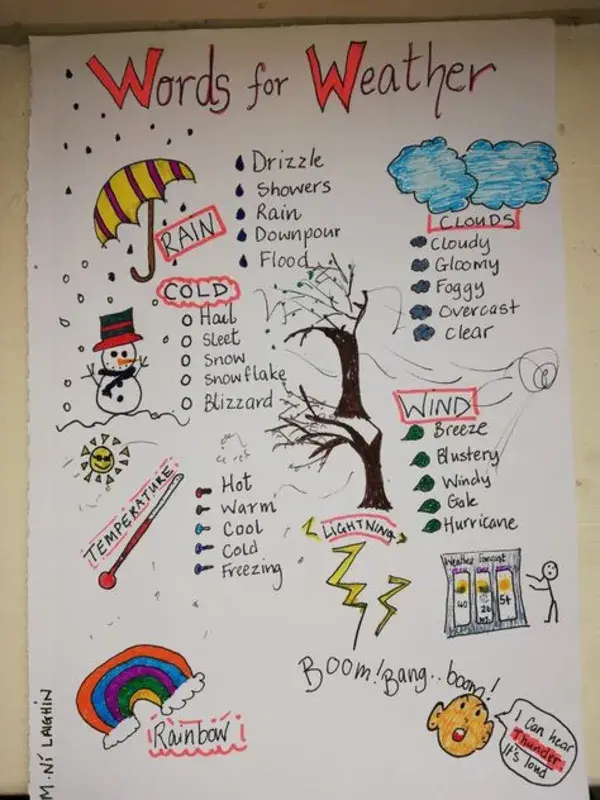 Words for Weather
RAIN
Drizzle
Showers
Rain
Downpour
Flood
CLOUDS
Cloudy
Gloomy
Foggy
Overcast
Clear
COLD
Hail
Sleet
Snow
Snowflake
Blizzard
WIND
Breeze
Blustery
Windy
Gale
Hurricane
TEMPERATURE
Hot
Warm
Cool
Cold
Freezing
LIGHTNING
Weather Forecast
40
54
BOOM! Bang.. boom!
I can hear
Thunder.
It's loud
Rainbow
M. Ní LAIGHIN